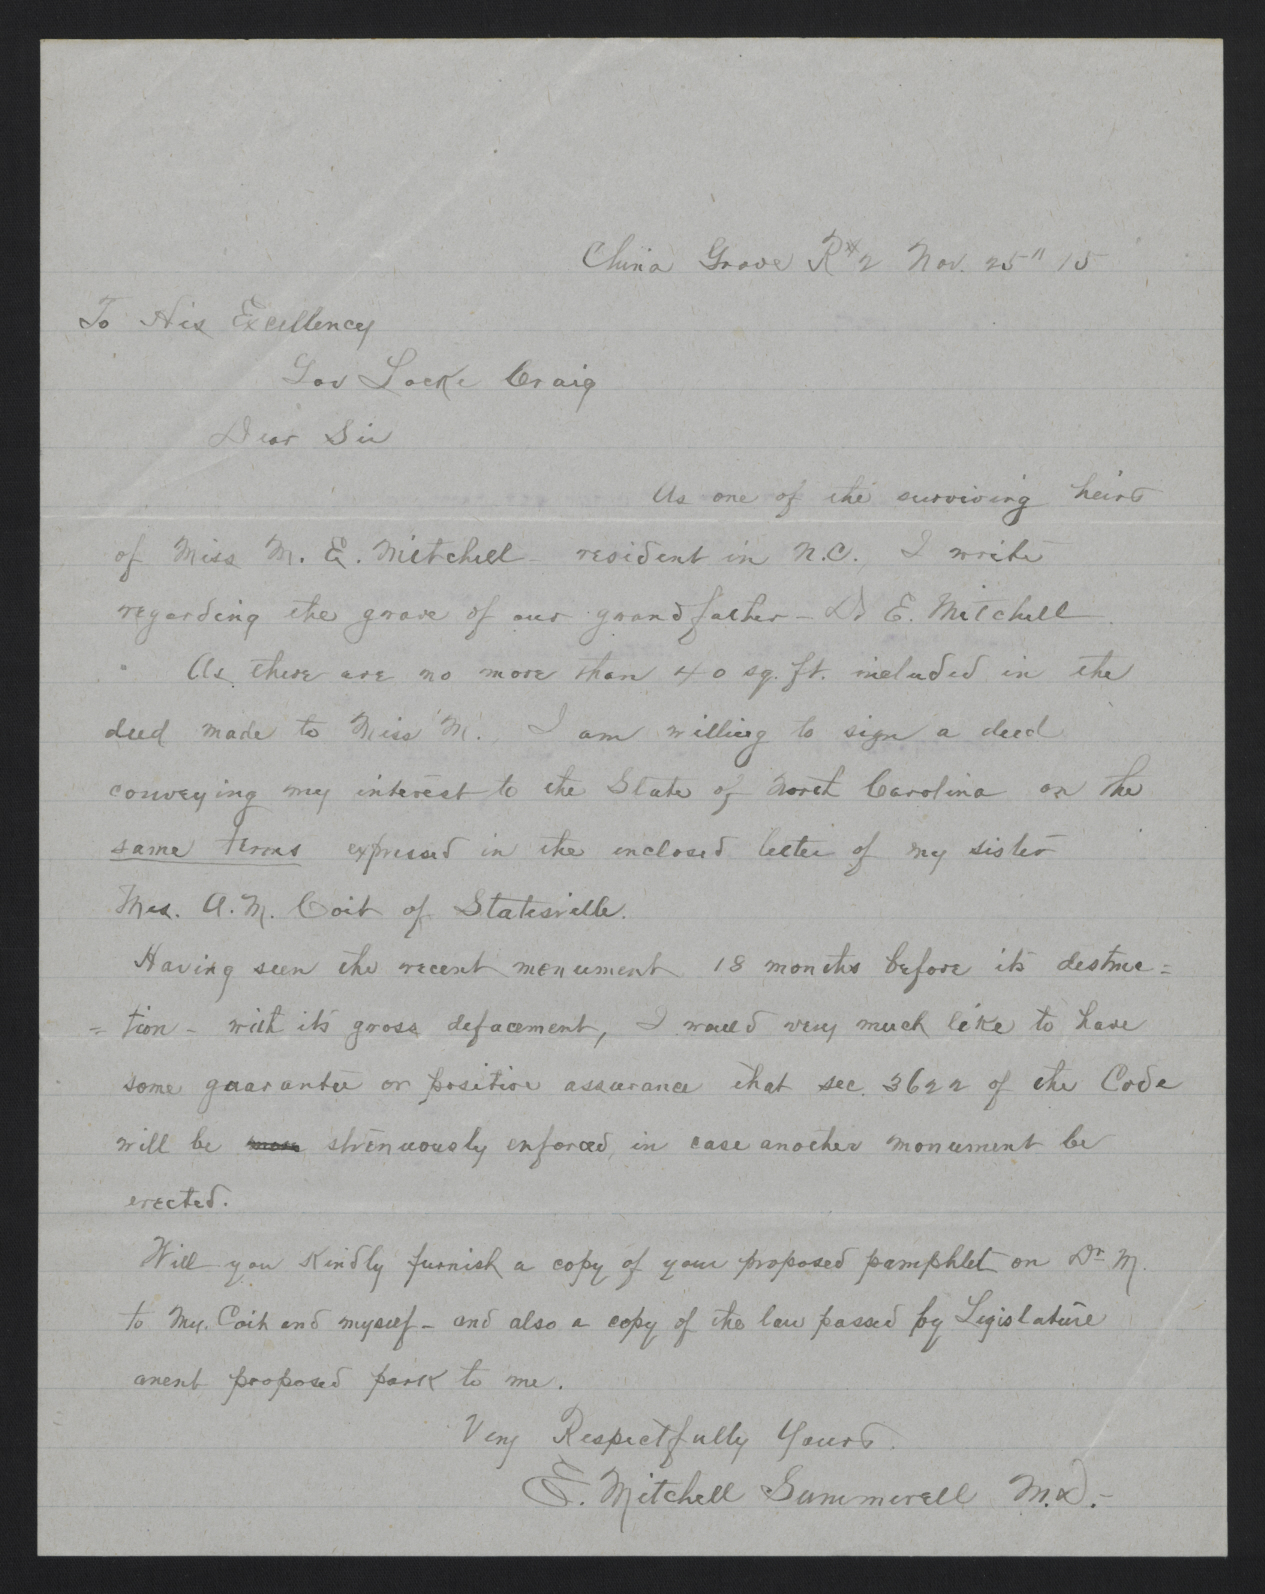 China Grove R#2 Nov. 25" 15
To His Excellency
Gov Locke Craig
Dear Sir
As one of the surviving heirs
of Miss M. E. Mitchell - resident in N.C. I write
regarding the grave of our grandfather - Dr E. Mitchell.
As there are no more than 40 sq. ft. included in the
deed made to Miss M. I am willing to sign a deed
conveying my interest to the State of North Carolina on the
same terms expressed in the inclosed letter of my sister
Mrs. A. M. Coit of Statesville.
Having seen the recent monument 18 months before its destruc=
= tion - with its gross defacement, I would very much like to have
some guarantee or positive assurance that sec. 3622 of the Code
will be strenuously enforced, in case another monument be
erected.
Will you kindly furnish a copy of your proposed pamphlet on Dr M.
to Mrs. Coit and myself - and also a copy of the law passed by Legislature
anent proposed park to me.
Very Respectfully Yours.
E. Mitchell Summerell M.D.-